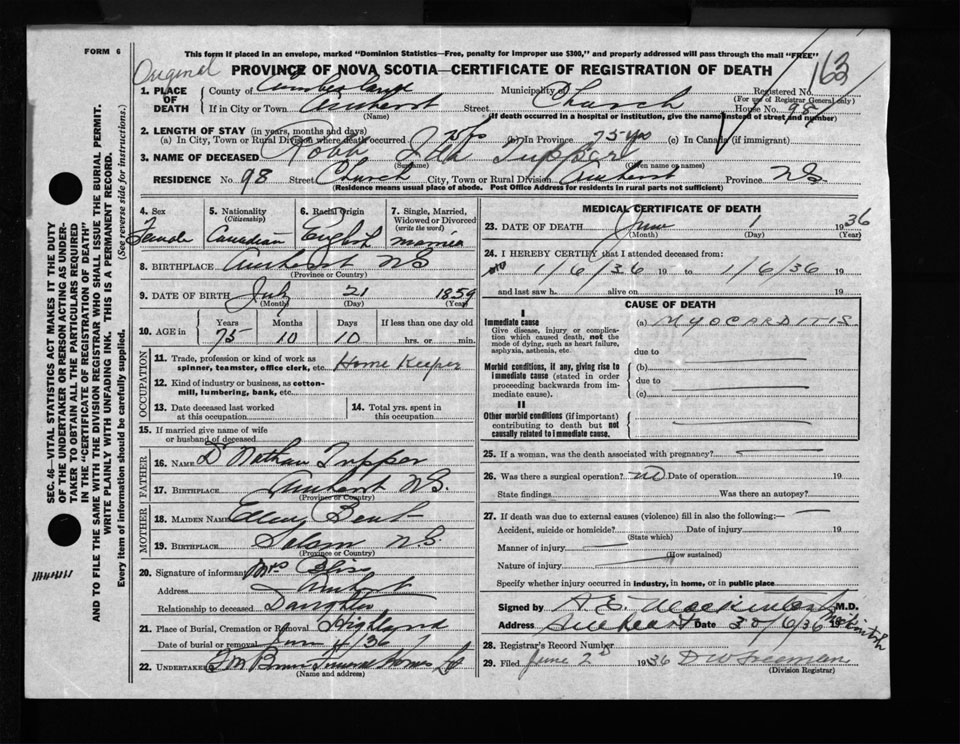 FORM 6
This form if placed in an envelope, marked "Dominion Statistics—Free, penalty for improper use $300," and properly addressed will pass through the mail "FREE"
Original
163
PROVINCE OF NOVA SCOTIA—CERTIFICATE OF REGISTRATION OF DEATH
1. PLACE OF DEATH County of Cumberland Municipality of Registered No.
(For use of Registrar General only)
If in City or Town Amherst Street Church House No. 98
(Name) (If death occurred in a hospital or institution, give the name instead of street and number)
2. LENGTH OF STAY (in years, months and days)
(a) In City, Town or Rural Division where death occurred (b) In Province 75 yrs (c) In Canada (if immigrant)
3. NAME OF DECEASED Robb Ida Tupper
(Surname) (Given name or names)
RESIDENCE No. 98 Street Church City, Town or Rural Division Amherst Province NS
(Residence means usual place of abode. Post Office Address for residents in rural parts not sufficient)
4. Sex Female
5. Nationality (Citizenship) Canadian
6. Racial Origin English
7. Single, Married, Widowed or Divorced (write the word) Married
8. BIRTHPLACE Amherst NS
(Province or Country)
9. DATE OF BIRTH July 21 1859
(Month) (Day) (Year)
10. AGE in Years Months Days If less than one day old
75 10 10 hrs. or min.
OCCUPATION
11. Trade, profession or kind of work as spinner, teamster, office clerk, etc. Home Keeper
12. Kind of industry or business, as cotton-mill, lumbering, bank, etc.
13. Date deceased last worked at this occupation
14. Total yrs. spent in this occupation
15. If married give name of wife or husband of deceased
FATHER
16. NAME Dr Nathan Tupper
17. BIRTHPLACE Amherst NS.
(Province or Country)
MOTHER
18. MAIDEN NAME Bent
19. BIRTHPLACE N.S.
(Province or Country)
20. Signature of informant Mrs Bliss
Address Amherst
Relationship to deceased Daughter
21. Place of Burial, Cremation or Removal Highland
Date of burial or removal June 4/36
22. Undertaker Funeral Home
(Name and address)
MEDICAL CERTIFICATE OF DEATH
23. DATE OF DEATH June 1 1936
(Month) (Day) (Year)
24. I HEREBY CERTIFY that I attended deceased from:
1/6/36 19 to 1/6/36 19
and last saw h alive on 19
CAUSE OF DEATH
I
Immediate cause (a) MYOCARDITIS
Give disease, injury or complication which caused death, not the mode of dying, such as heart failure, asphyxia, asthenia, etc.
due to
Morbid conditions, if any, giving rise to immediate cause (stated in order proceeding backwards from immediate cause).
(b)
due to
(c)
II
Other morbid conditions (if important) contributing to death but not causally related to immediate cause.
25. If a woman, was the death associated with pregnancy?
26. Was there a surgical operation? no Date of operation 19
State findings Was there an autopsy?
27. If death was due to external causes (violence) fill in also the following:—
Accident, suicide or homicide? Date of injury 19
(State which)
Manner of injury
(How sustained)
Nature of injury
Specify whether injury occurred in industry, in home, or in public place
Signed by M.D.
Address Amherst Date 19
28. Registrar's Record Number
29. Filed June 2d 1936
(Division Registrar)
SEC. 46—VITAL STATISTICS ACT MAKES IT THE DUTY
OF THE UNDERTAKER OR PERSON ACTING AS UNDER-
TAKER TO OBTAIN ALL THE PARTICULARS REQUIRED
IN THE "CERTIFICATE OF REGISTRATION OF DEATH"
AND TO FILE THE SAME WITH THE DIVISION REGISTRAR WHO SHALL ISSUE THE BURIAL PERMIT.
WRITE PLAINLY WITH UNFADING INK. THIS IS A PERMANENT RECORD.
Every item of information should be carefully supplied. (See reverse side for instructions.)